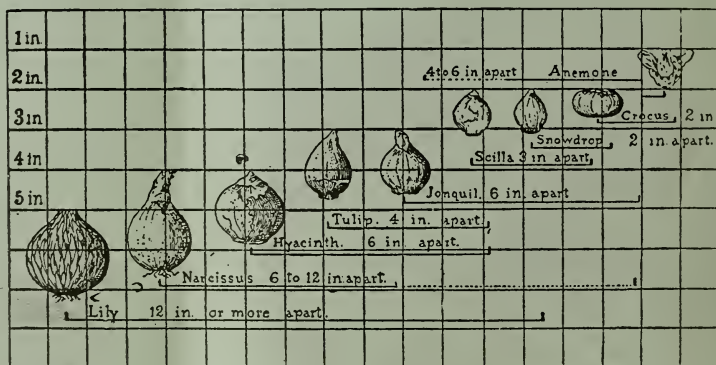 1 in.
2 in.
4 to 6 in apart Anemone
3 in
Crocus 2 in
Snowdrop 2 in. apart.
4 in
Scilla 3 in apart
Jonquil. 6 in. apart
5 in
Tulip. 4 in. apart.
Hyacinth. 6 in. apart.
Narcissus 6 to 12 in. apart.
Lily 12 in. or more apart.